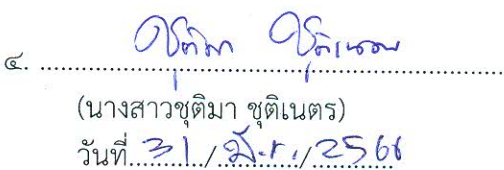 ๔. ชุติมา ชุติเนตร
(นางสาวชุติมา ชุติเนตร)
วันที่ 31 / มี.ค. / 2566